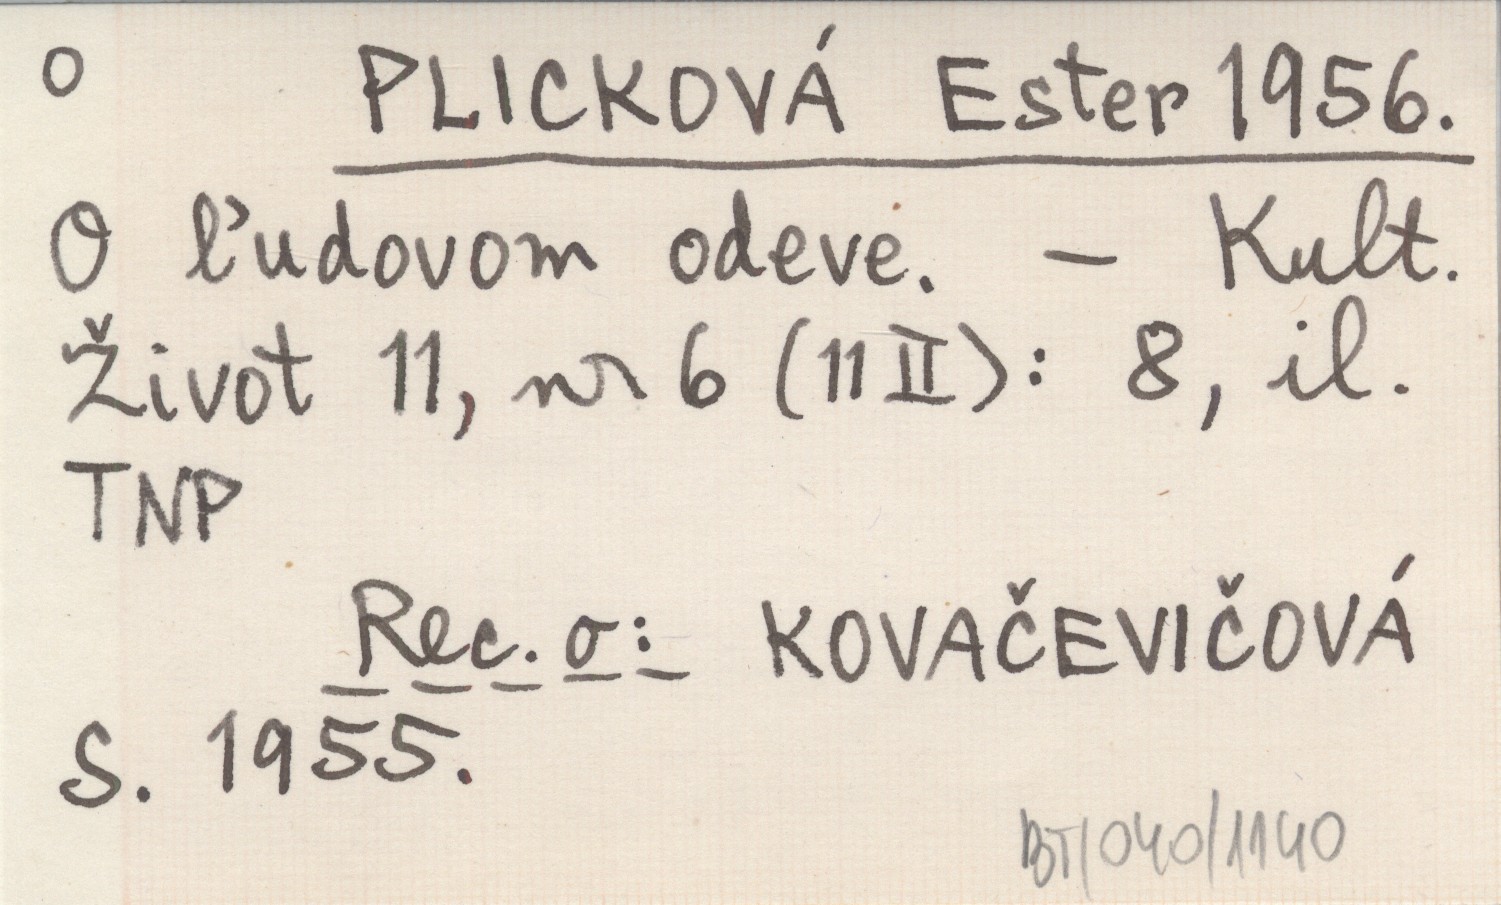 o PLICKOVÁ Ester 1956.
O ľudovom odeve. – Kult.
Život 11, nr 6 (11 II): 8, il.
TNP
Rec. o: KOVAČEVIČOVÁ
S. 1955.
BT/040/1140